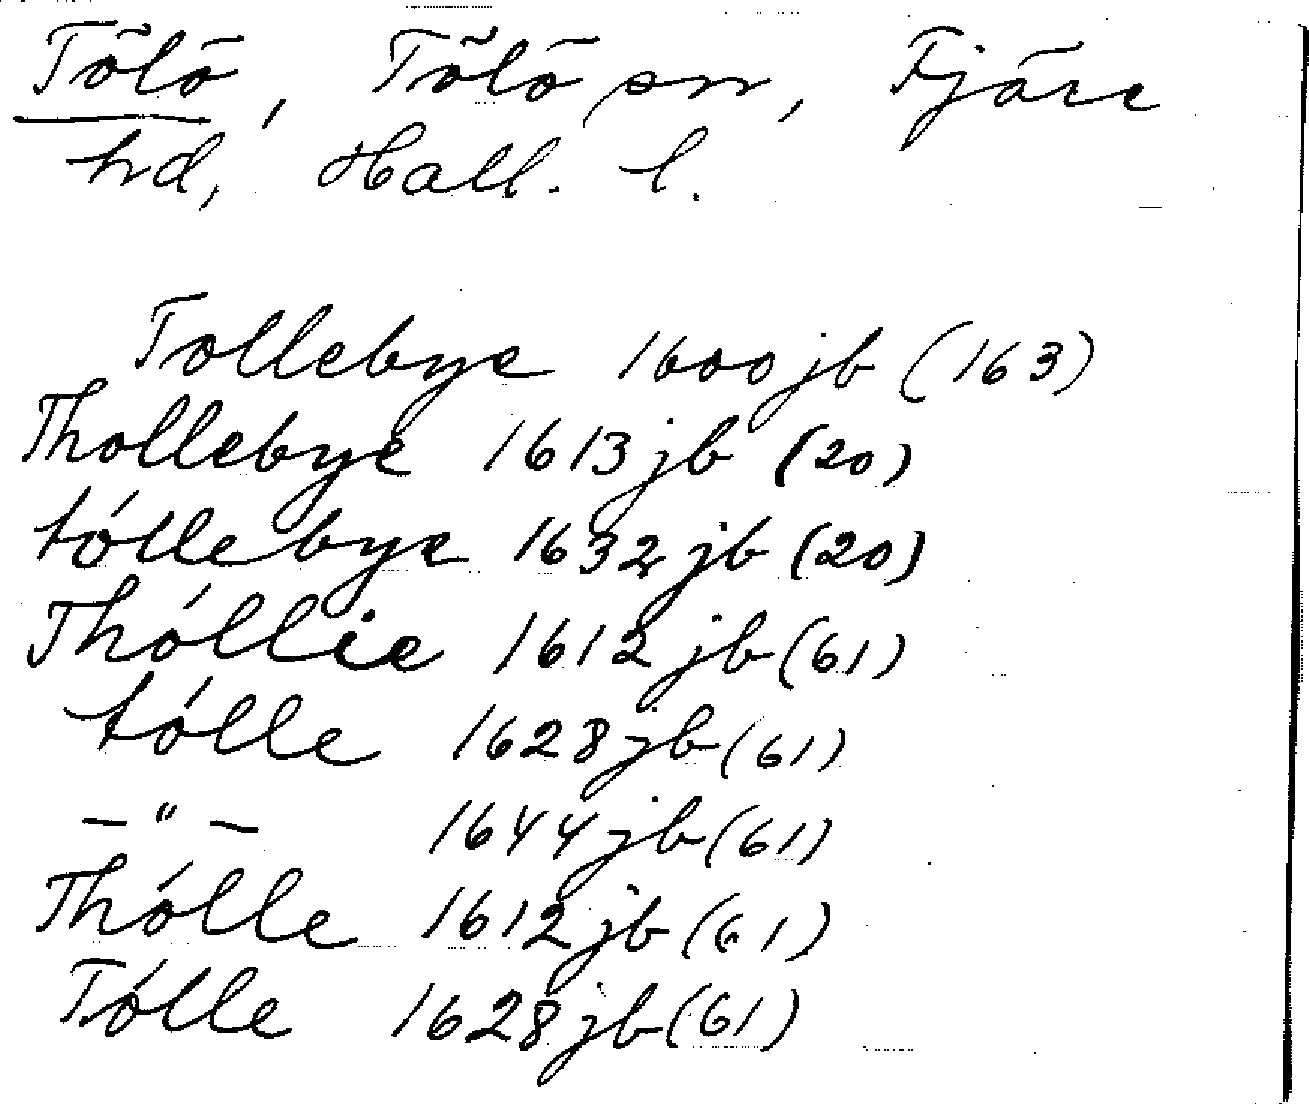 Tölö, Tölö sn, Fjäre
hd, Hall. l.
Tollebye 1600 jb (163)
Thollebye 1613 jb (20)
tóllebye 1632 jb (20)
Thóllie 1612 jb (61)
tólle 1628 jb (61)
— " — 1644 jb (61)
Thólle 1612 jb (61)
Tólle 1628 jb (61)